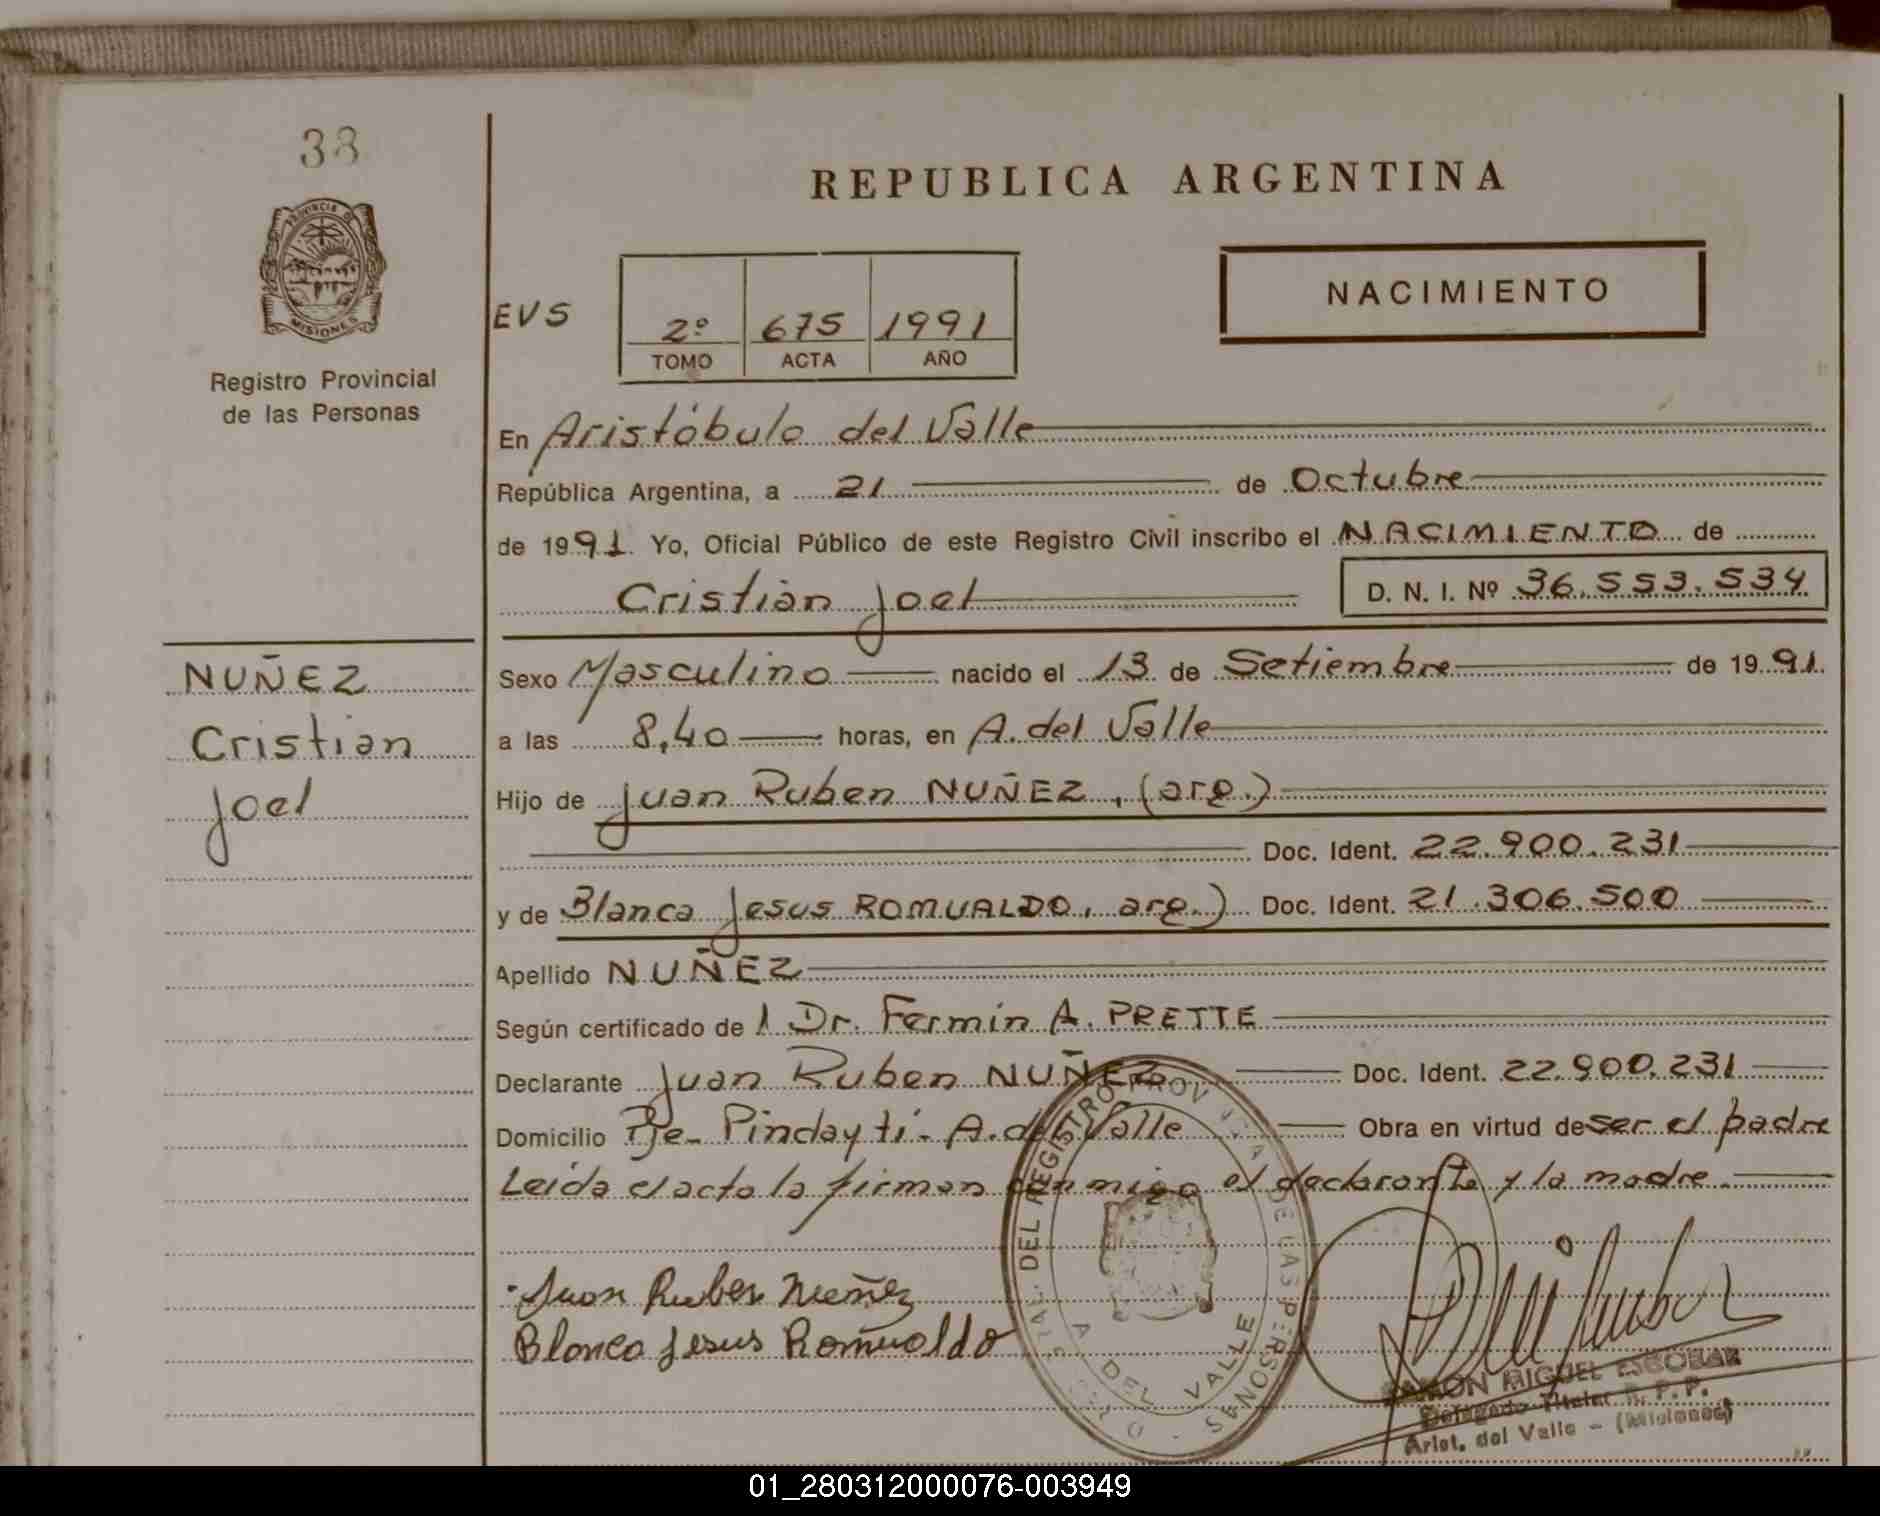 38
PROVINCIA DE
MISIONES
Registro Provincial
de las Personas
REPUBLICA ARGENTINA
NACIMIENTO
EVS
2º 675 1991
TOMO ACTA AÑO
En Aristóbulo del Valle
República Argentina, a 21 de Octubre
de 1991. Yo, Oficial Público de este Registro Civil inscribo el NACIMIENTO de
Cristian Joel D. N. I. Nº 36.553.534
NUÑEZ
Cristian
Joel
Sexo Masculino nacido el 13 de Setiembre de 1991.
a las 8,40 horas, en A. del Valle
Hijo de Juan Ruben NUÑEZ, (arg.)
Doc. Ident. 22.900.231
y de Blanca Jesus ROMUALDO, arg.) Doc. Ident. 21.306.500
Apellido NUÑEZ
Según certificado de l Dr. Fermin A. PRETTE
Declarante Juan Ruben NUÑEZ Doc. Ident. 22.900.231
Domicilio Pje- Pindayti- A. del Valle Obra en virtud de ser el padre
Leida el acta la firman conmigo el declarante y la madre.
Juan Ruben Nuñez
Blanca Jesus Romualdo
DEL REGISTRO PROVINCIAL DE LAS PERSONAS
A. DEL VALLE
RAMON MIGUEL ESCOBAR
Delegado Titular R. P. P.
Arist. del Valle - (Misiones)
01_280312000076-003949